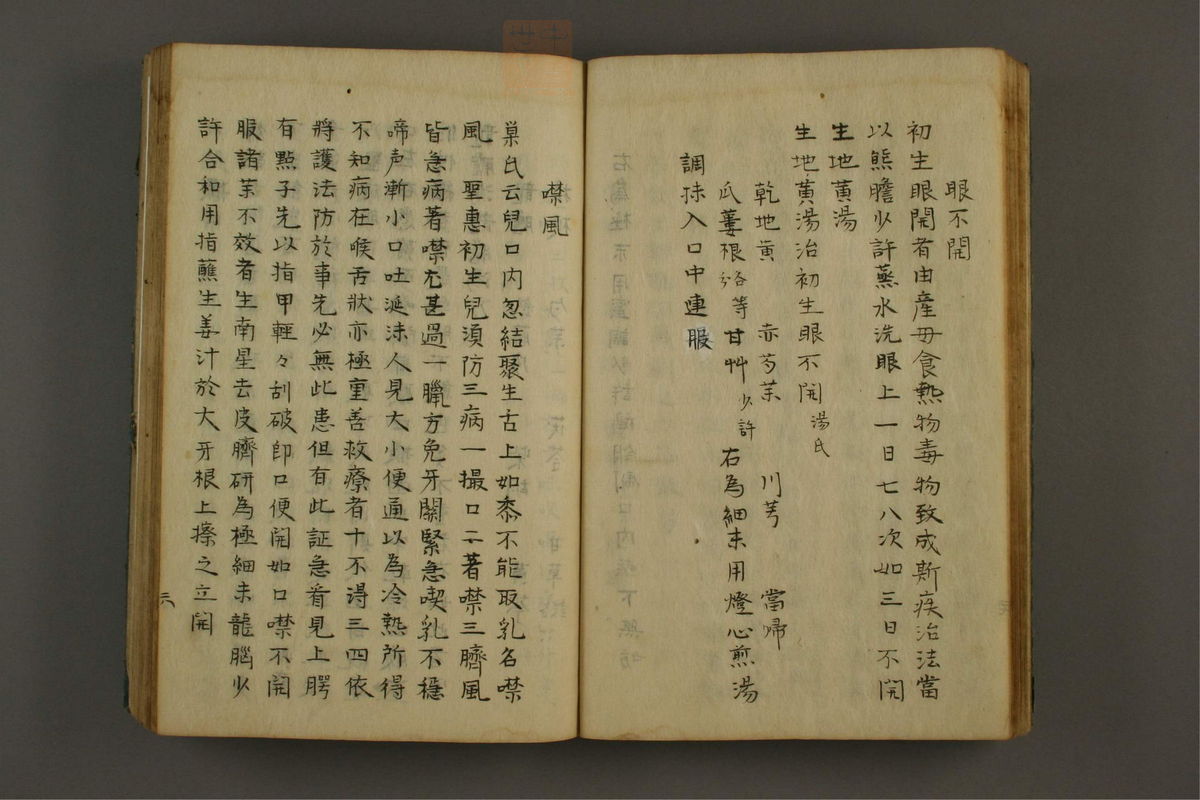 眼不開
初生眼開者由産母食熱物毒物致成斯疾治法當
以熊膽少許蒸水洗眼上一日七八次如三日不開
生地黄湯
生地黄湯治初生眼不開 湯氏
乾地黄 赤芍茱 川芎 當歸
瓜蔞根各等分 甘艸少許 右為細末用燈心煎湯
調抹入口中連服
噤風
巢氏云兒口内忽結聚生舌上如黍不能取乳名噤
風 聖惠初生兒須防三病一撮口二著噤三臍風
皆急病著噤尤甚過一臘方免牙關緊急喫乳不穩
啼声漸小口吐涎沫人見大小便通以為冷熱所得
不知病在喉舌狀亦極重善救療者十不得三四依
將護法防於事先必無此患但有此証急看見上腭
有點子先以指甲輕々刮破即口便開如口噤不開
服諸茱不效者生南星去皮臍研為極細末龍腦少
許合和用指蘸生姜汁於大牙根上擦之立開
六